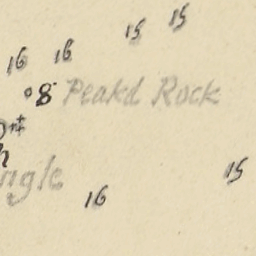 15 15
16 16
8 Peakd Rock
nt
ngle
16 15